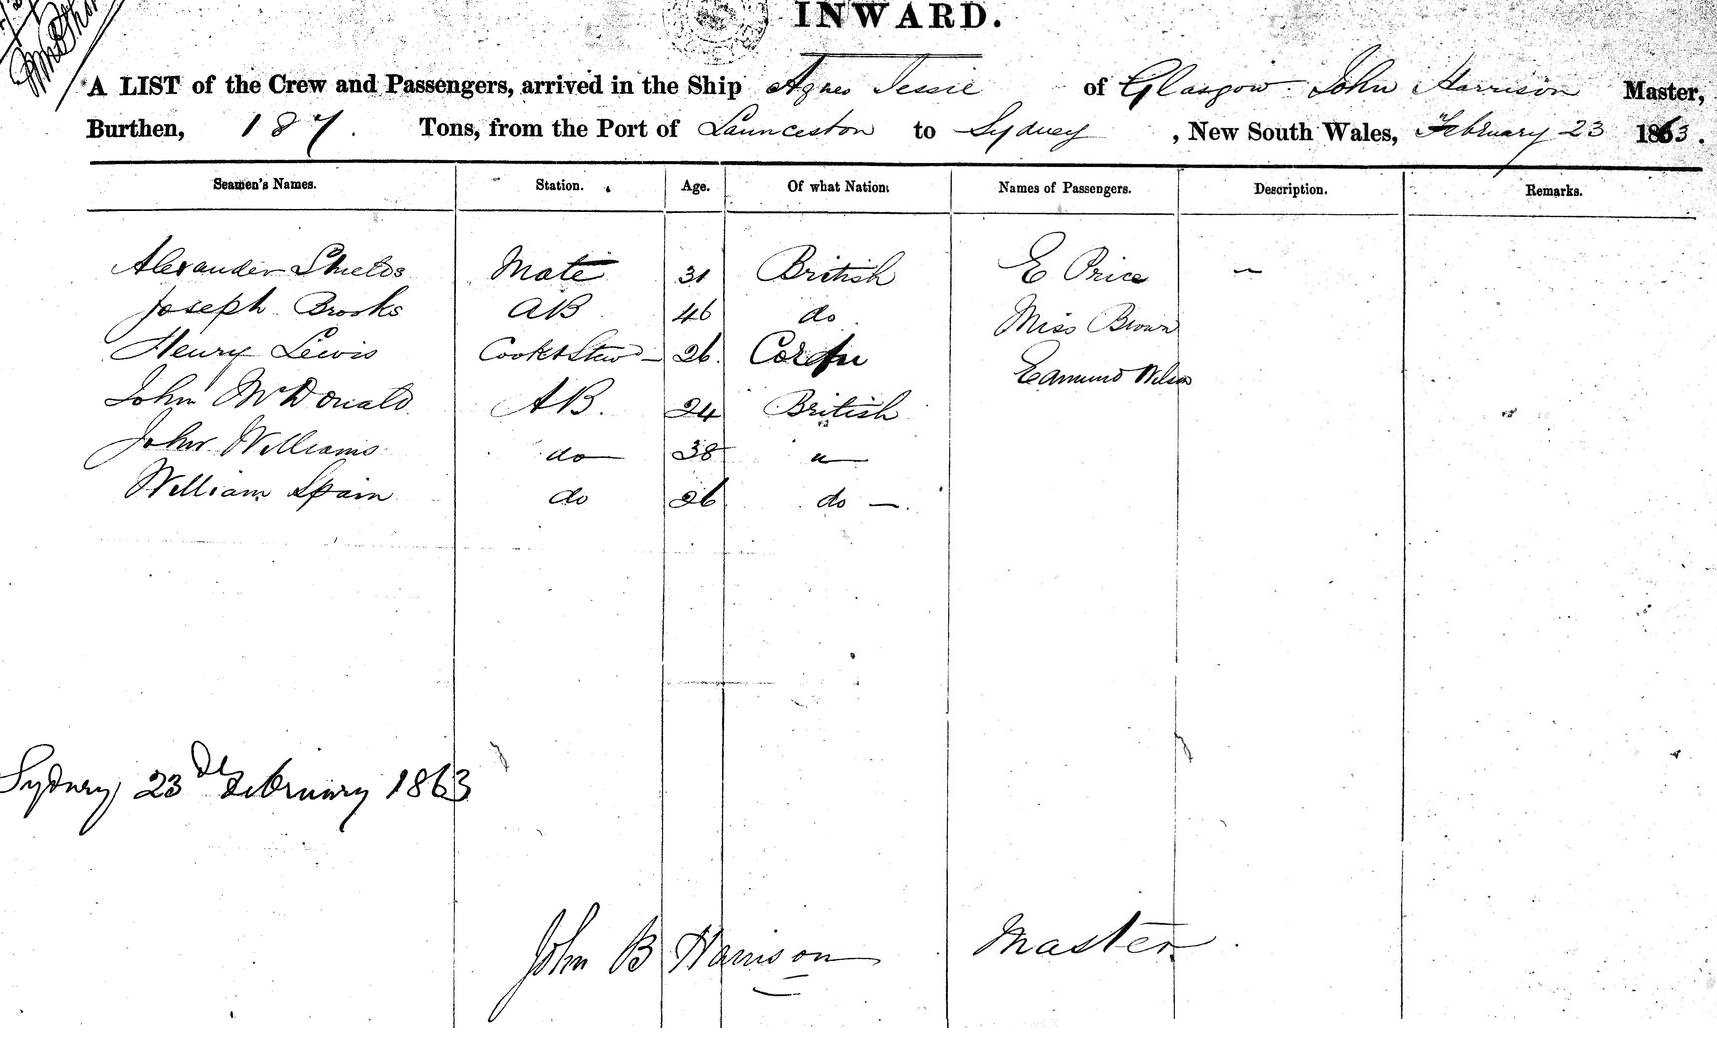 INWARD.
A LIST of the Crew and Passengers, arrived in the Ship Agnes Jessie of Glasgow John Harrison Master,
Burthen, 187. Tons, from the Port of Launceston to Sydney, New South Wales, February 23 1863.
Seamen's Names. Station. Age. Of what Nation: Names of Passengers. Description. Remarks.
Alexander Shields Mate 31 British E Price —
Joseph Brooks AB 46 do Miss Brown
Henry Lewis Cook & Stewd — 26. Corfu Edmund Wilson
John McDonald AB. 24 British
John Williams do — 38 " —
William Spain do 26 do —.
Sydney 23 February 1863
John B Harrison Master.